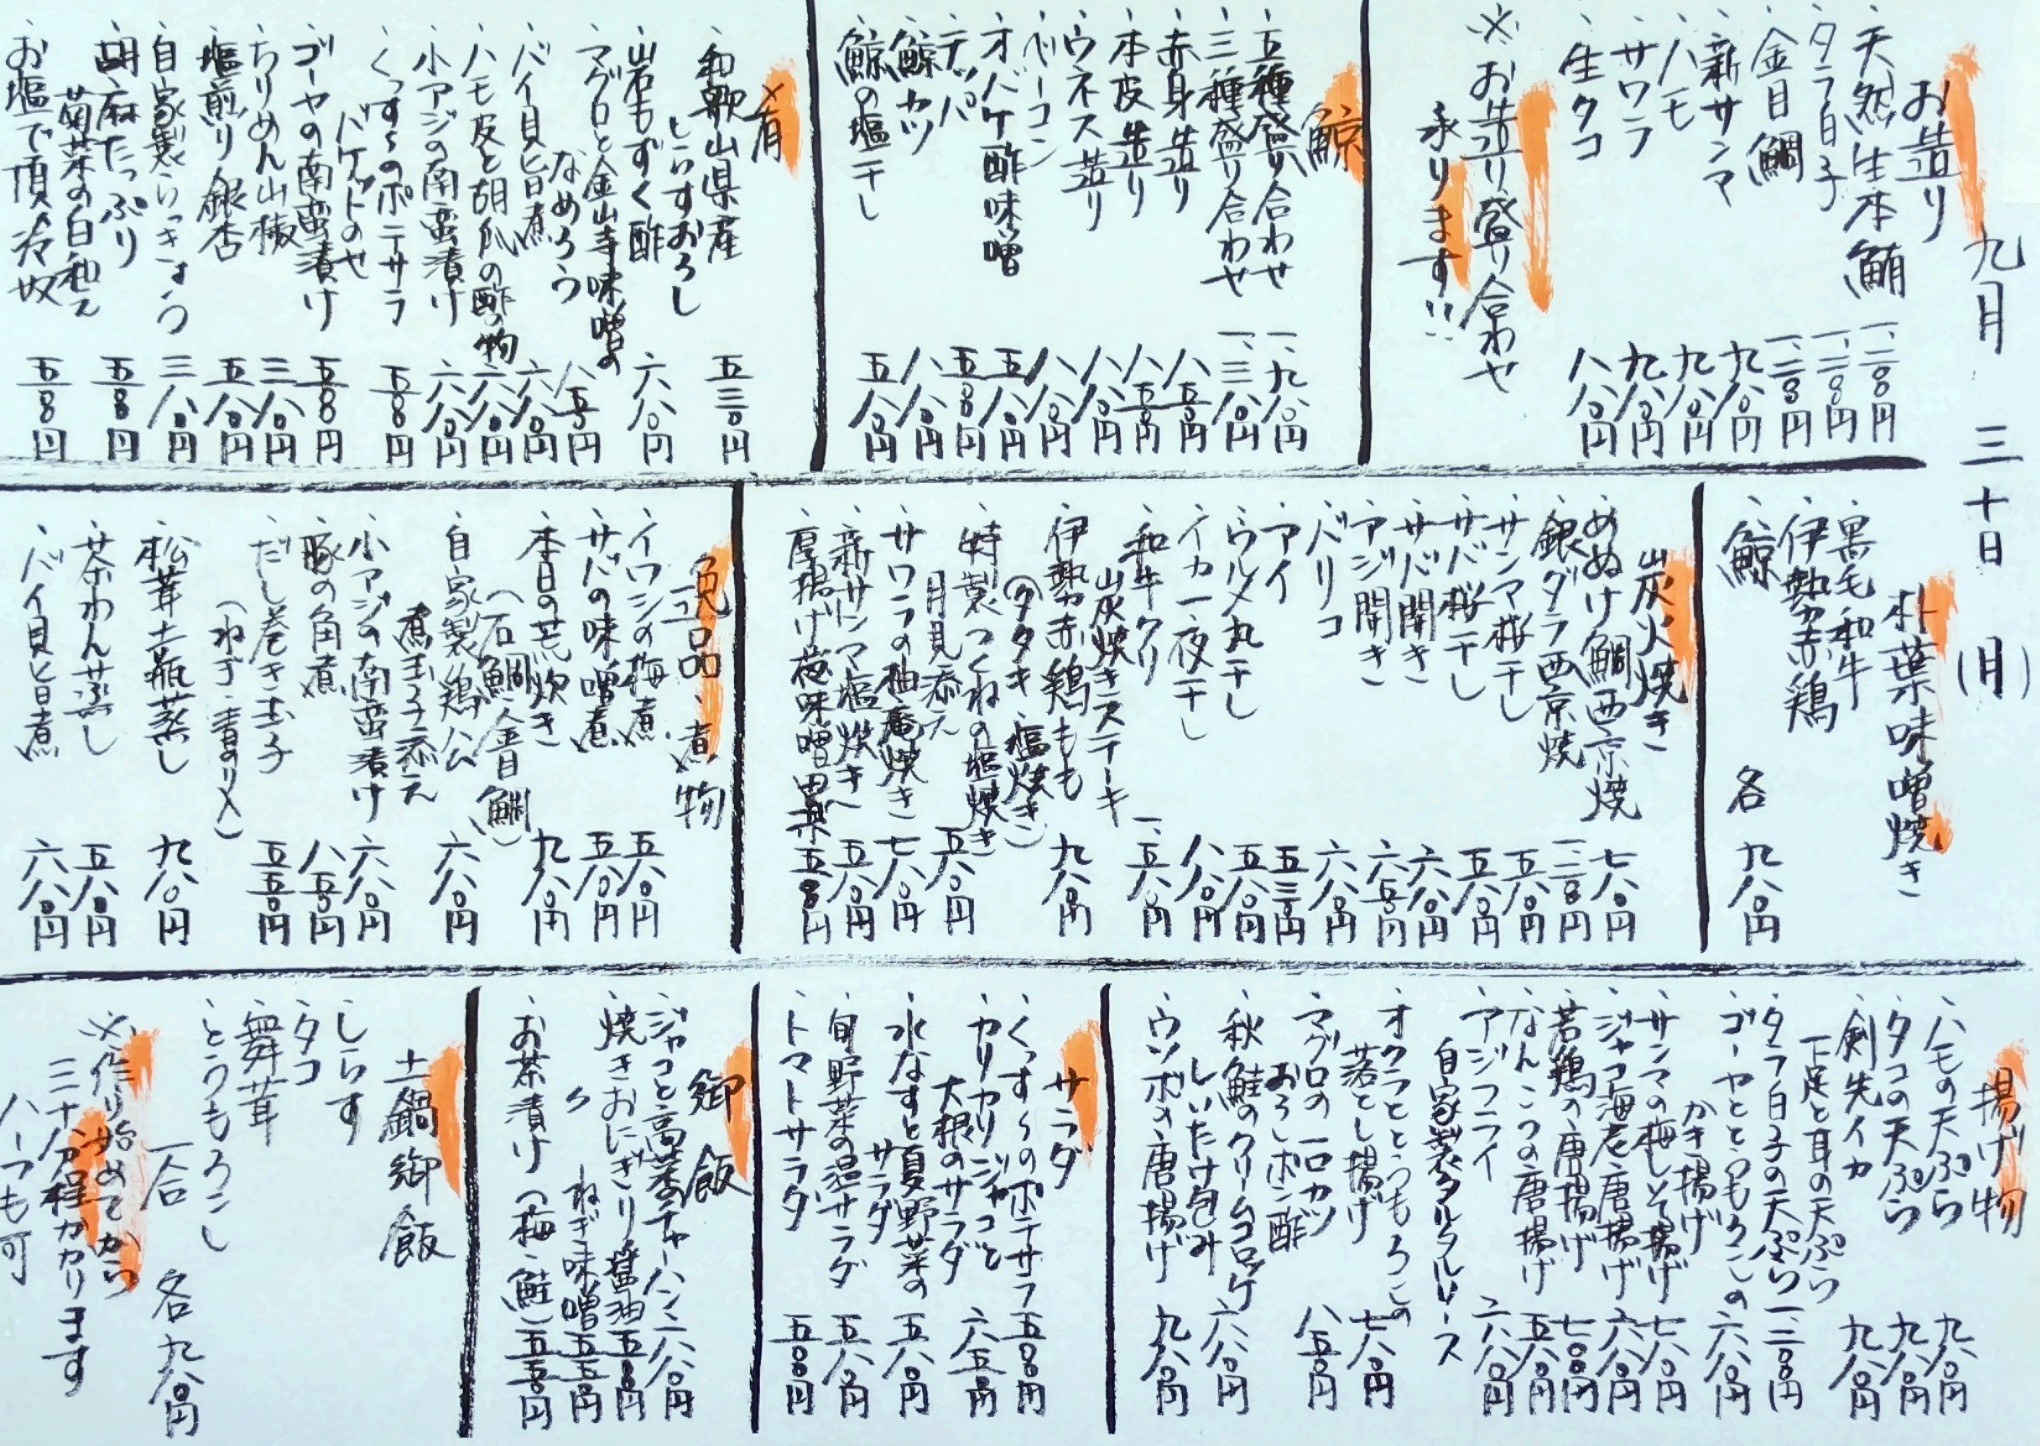 九月 三十日 (月)
お造り
天然生本鮪 一、二〇〇円
タラ白子 一、二〇〇円
金目鯛 一、二〇〇円
新サンマ 九八〇円
ハモ 九八〇円
サワラ 九八〇円
生タコ 八八〇円
※お造り盛り合わせ
承ります!!
鯨
五種盛り合わせ 一、九八〇円
三種盛り合わせ 一、三八〇円
赤身造り 八五〇円
本皮造り 八五〇円
ウネス造り 八八〇円
ベーコン 八八〇円
オバケ酢味噌 五八〇円
テッパ 五八〇円
鯨カツ 八八〇円
鯨の塩干し 五八〇円
肴
和歌山県産
しらすおろし 五三〇円
岩もずく酢 六八〇円
マグロと金山寺味噌の
なめろう 八五〇円
バイ貝旨煮 六八〇円
ハモ皮と胡瓜の酢の物 六八〇円
小アジの南蛮漬け 六八〇円
くっす〜のポテサラ
バケットのせ 五〇〇円
ゴーヤの南蛮漬け 五〇〇円
ちりめん山椒 三八〇円
塩煎り銀杏 五八〇円
自家製らっきょう 三八〇円
胡麻たっぷり
菊菜の白和え 五〇〇円
お塩で頂く冷奴 五〇〇円
朴葉味噌焼き
黒毛和牛
伊勢赤鶏
鯨 各 九八〇円
炭火焼き
めぬけ鯛西京焼 七八〇円
銀ダラ西京焼 一、二〇〇円
サンマ桜干し 五八〇円
サバ桜干し 五八〇円
サバ開き 六八〇円
アジ開き 六五〇円
バリコ 六八〇円
アイ 五三〇円
ウルメ丸干し 五八〇円
イカ一夜干し 八八〇円
和牛クリ
炭焼きステーキ 一、五八〇円
伊勢赤鶏もも
(タタキ・塩焼き) 九八〇円
特製つくねの塩焼き
月見添え 五八〇円
サワラの柚庵焼き 七八〇円
新サンマ塩焼き 五八〇円
厚揚げ葱味噌田楽 五五〇円
逸品・煮物
イワシの梅煮 五八〇円
サバの味噌煮 五八〇円
本日の荒炊き
(石鯛・金目鯛) 九八〇円
自家製鶏公
煮玉子添え 六八〇円
小アジの南蛮漬け 六八〇円
豚の角煮 八五〇円
だし巻き玉子
(ねぎ・青のり入) 五五〇円
松茸土瓶蒸し 九八〇円
茶わん蒸し 五八〇円
バイ貝旨煮 六八〇円
揚げ物
ハモの天ぷら 九八〇円
タコの天ぷら 九八〇円
剣先イカ
下足と耳の天ぷら 九八〇円
タラ白子の天ぷら 一、二〇〇円
ゴーヤととうもろこしの
かき揚げ 六八〇円
サンマの梅しそ揚げ 七八〇円
ジャコ海老唐揚げ 六八〇円
若鶏の唐揚げ 七〇〇円
なんこつの唐揚げ 五八〇円
アジフライ
自家製タルタルソース 六八〇円
オクラととうもろこしの
落とし揚げ 七八〇円
マグロの一口カツ
おろしポン酢 八五〇円
秋鮭のクリームコロッケ
しいたけ包み 六八〇円
ウツボの唐揚げ 九八〇円
サラダ
くっす〜のポテサラ 五〇〇円
カリカリジャコと
大根のサラダ 六五〇円
水なすと夏野菜の
サラダ 五八〇円
旬野菜の温サラダ 五八〇円
トマトサラダ 五〇〇円
御飯
ジャコと高菜のチャーハン 六八〇円
焼きおにぎり醤油 五〇〇円
〃 ねぎ味噌 五五〇円
お茶漬け(梅・鮭) 五五〇円
土鍋御飯
しらす
タコ
舞茸
とうもろこし
一合 各九八〇円
※作り始めてから
三十分程カカリます
ハーフも可